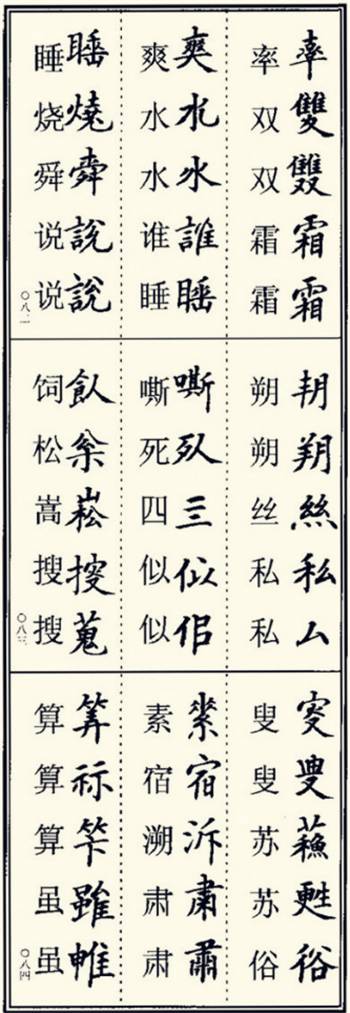 率雙䨇霜霜
率双双霜霜
爽水水誰睡
爽水水谁睡
睡燒舜說説
睡烧舜说说
〇八二
朔絲私厶
朔朔丝私私
嘶亖似佀
嘶死四似似
飤枀搜蒐
饲松嵩搜搜
〇八三
叜叟蘇甦俗
叟叟苏苏俗
素宿泝肅肅
素宿溯肃肃
筭祘笇雖
算算算虽虽
〇八四